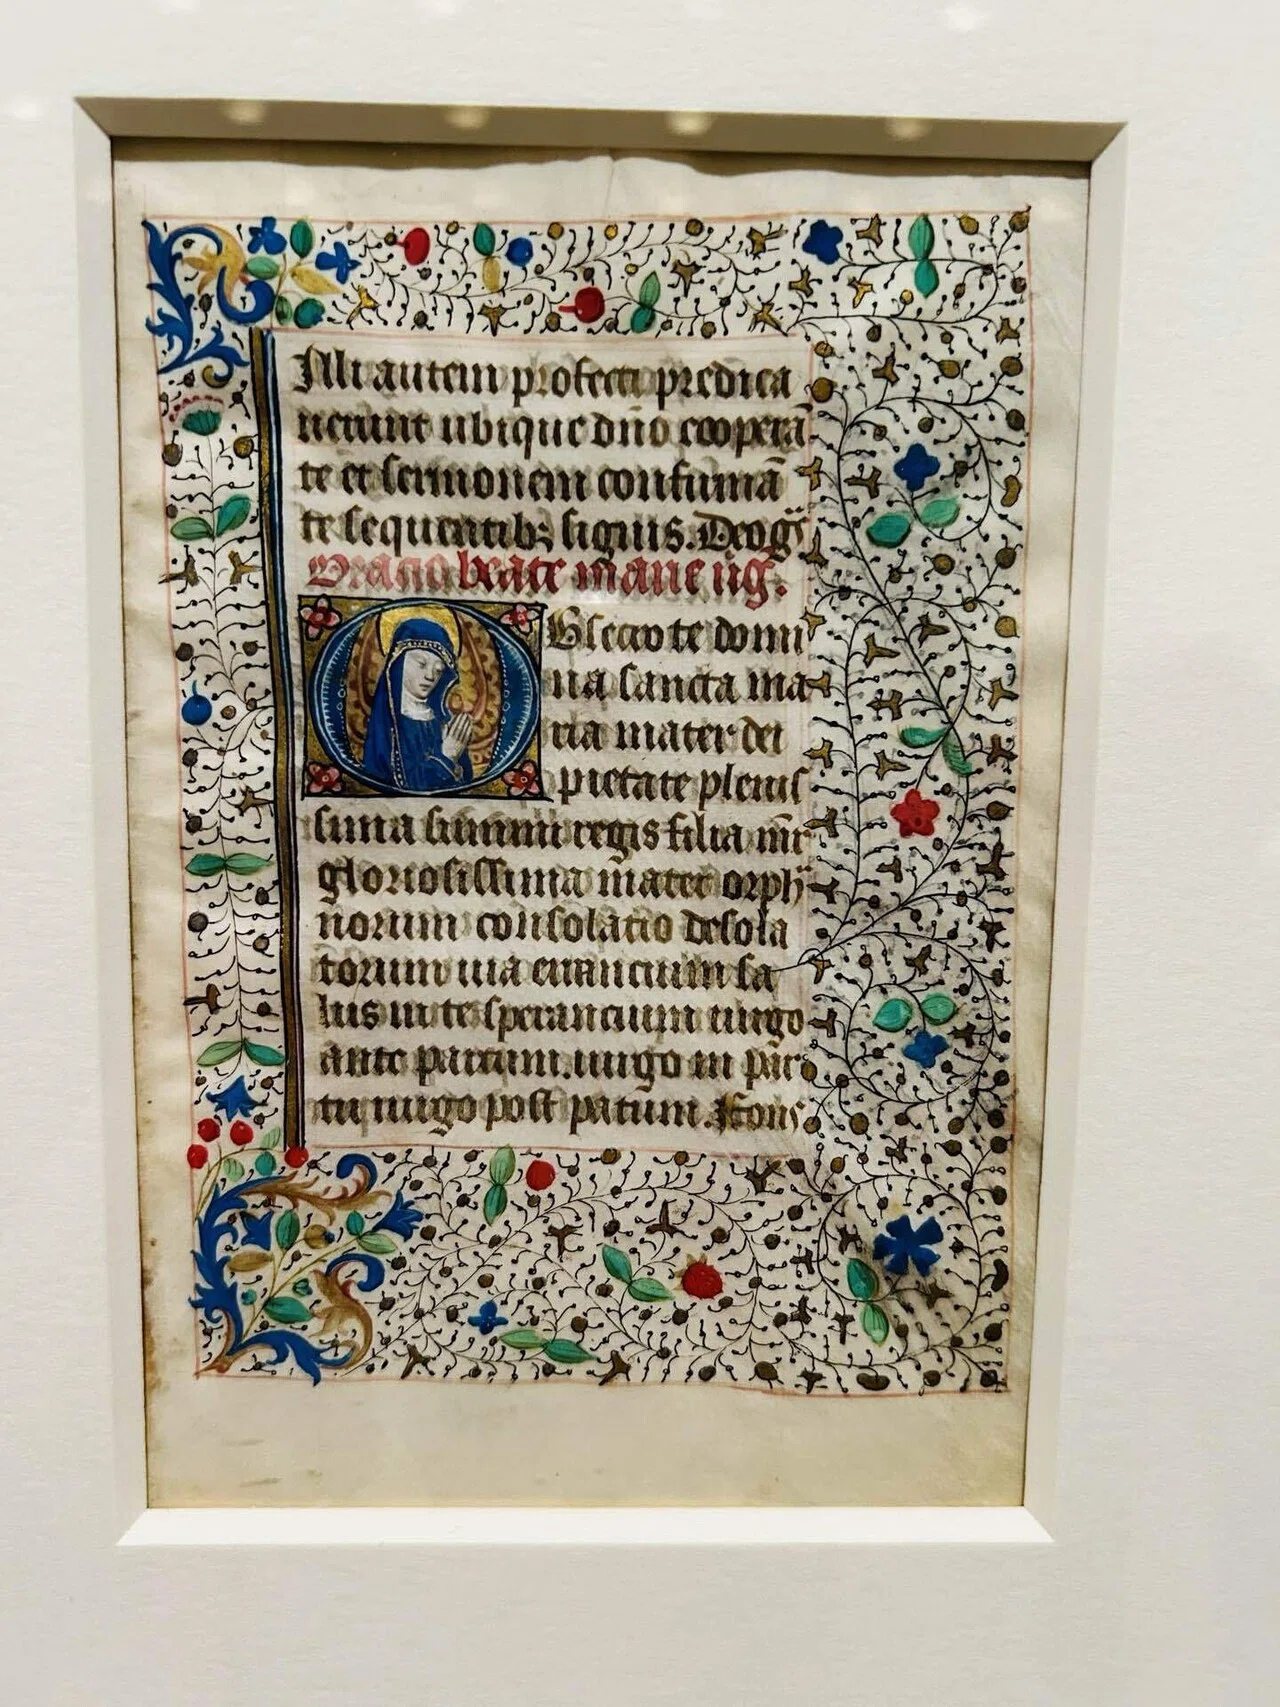 Illi autem profecti predica
uerunt ubique dño coopera̅
te et sermonem confirma̅
te sequentibꝫ signis. Deo gr̃
Oratio beate marie uig̃.
Obsecro te domi
na sancta ma
ria mater dei
pietate plenis
sima summi regis filia m̃r
gloriosissima mater orph
norum consolatio desola
torum uia errancium sa
lus in te sperancium uirgo
ante partum. uirgo in par
tu uirgo post partum. Fons